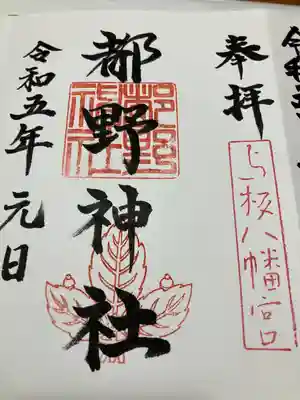 奉拝
与板八幡宮
都野神社
都野神社
令和五年 元日
令和